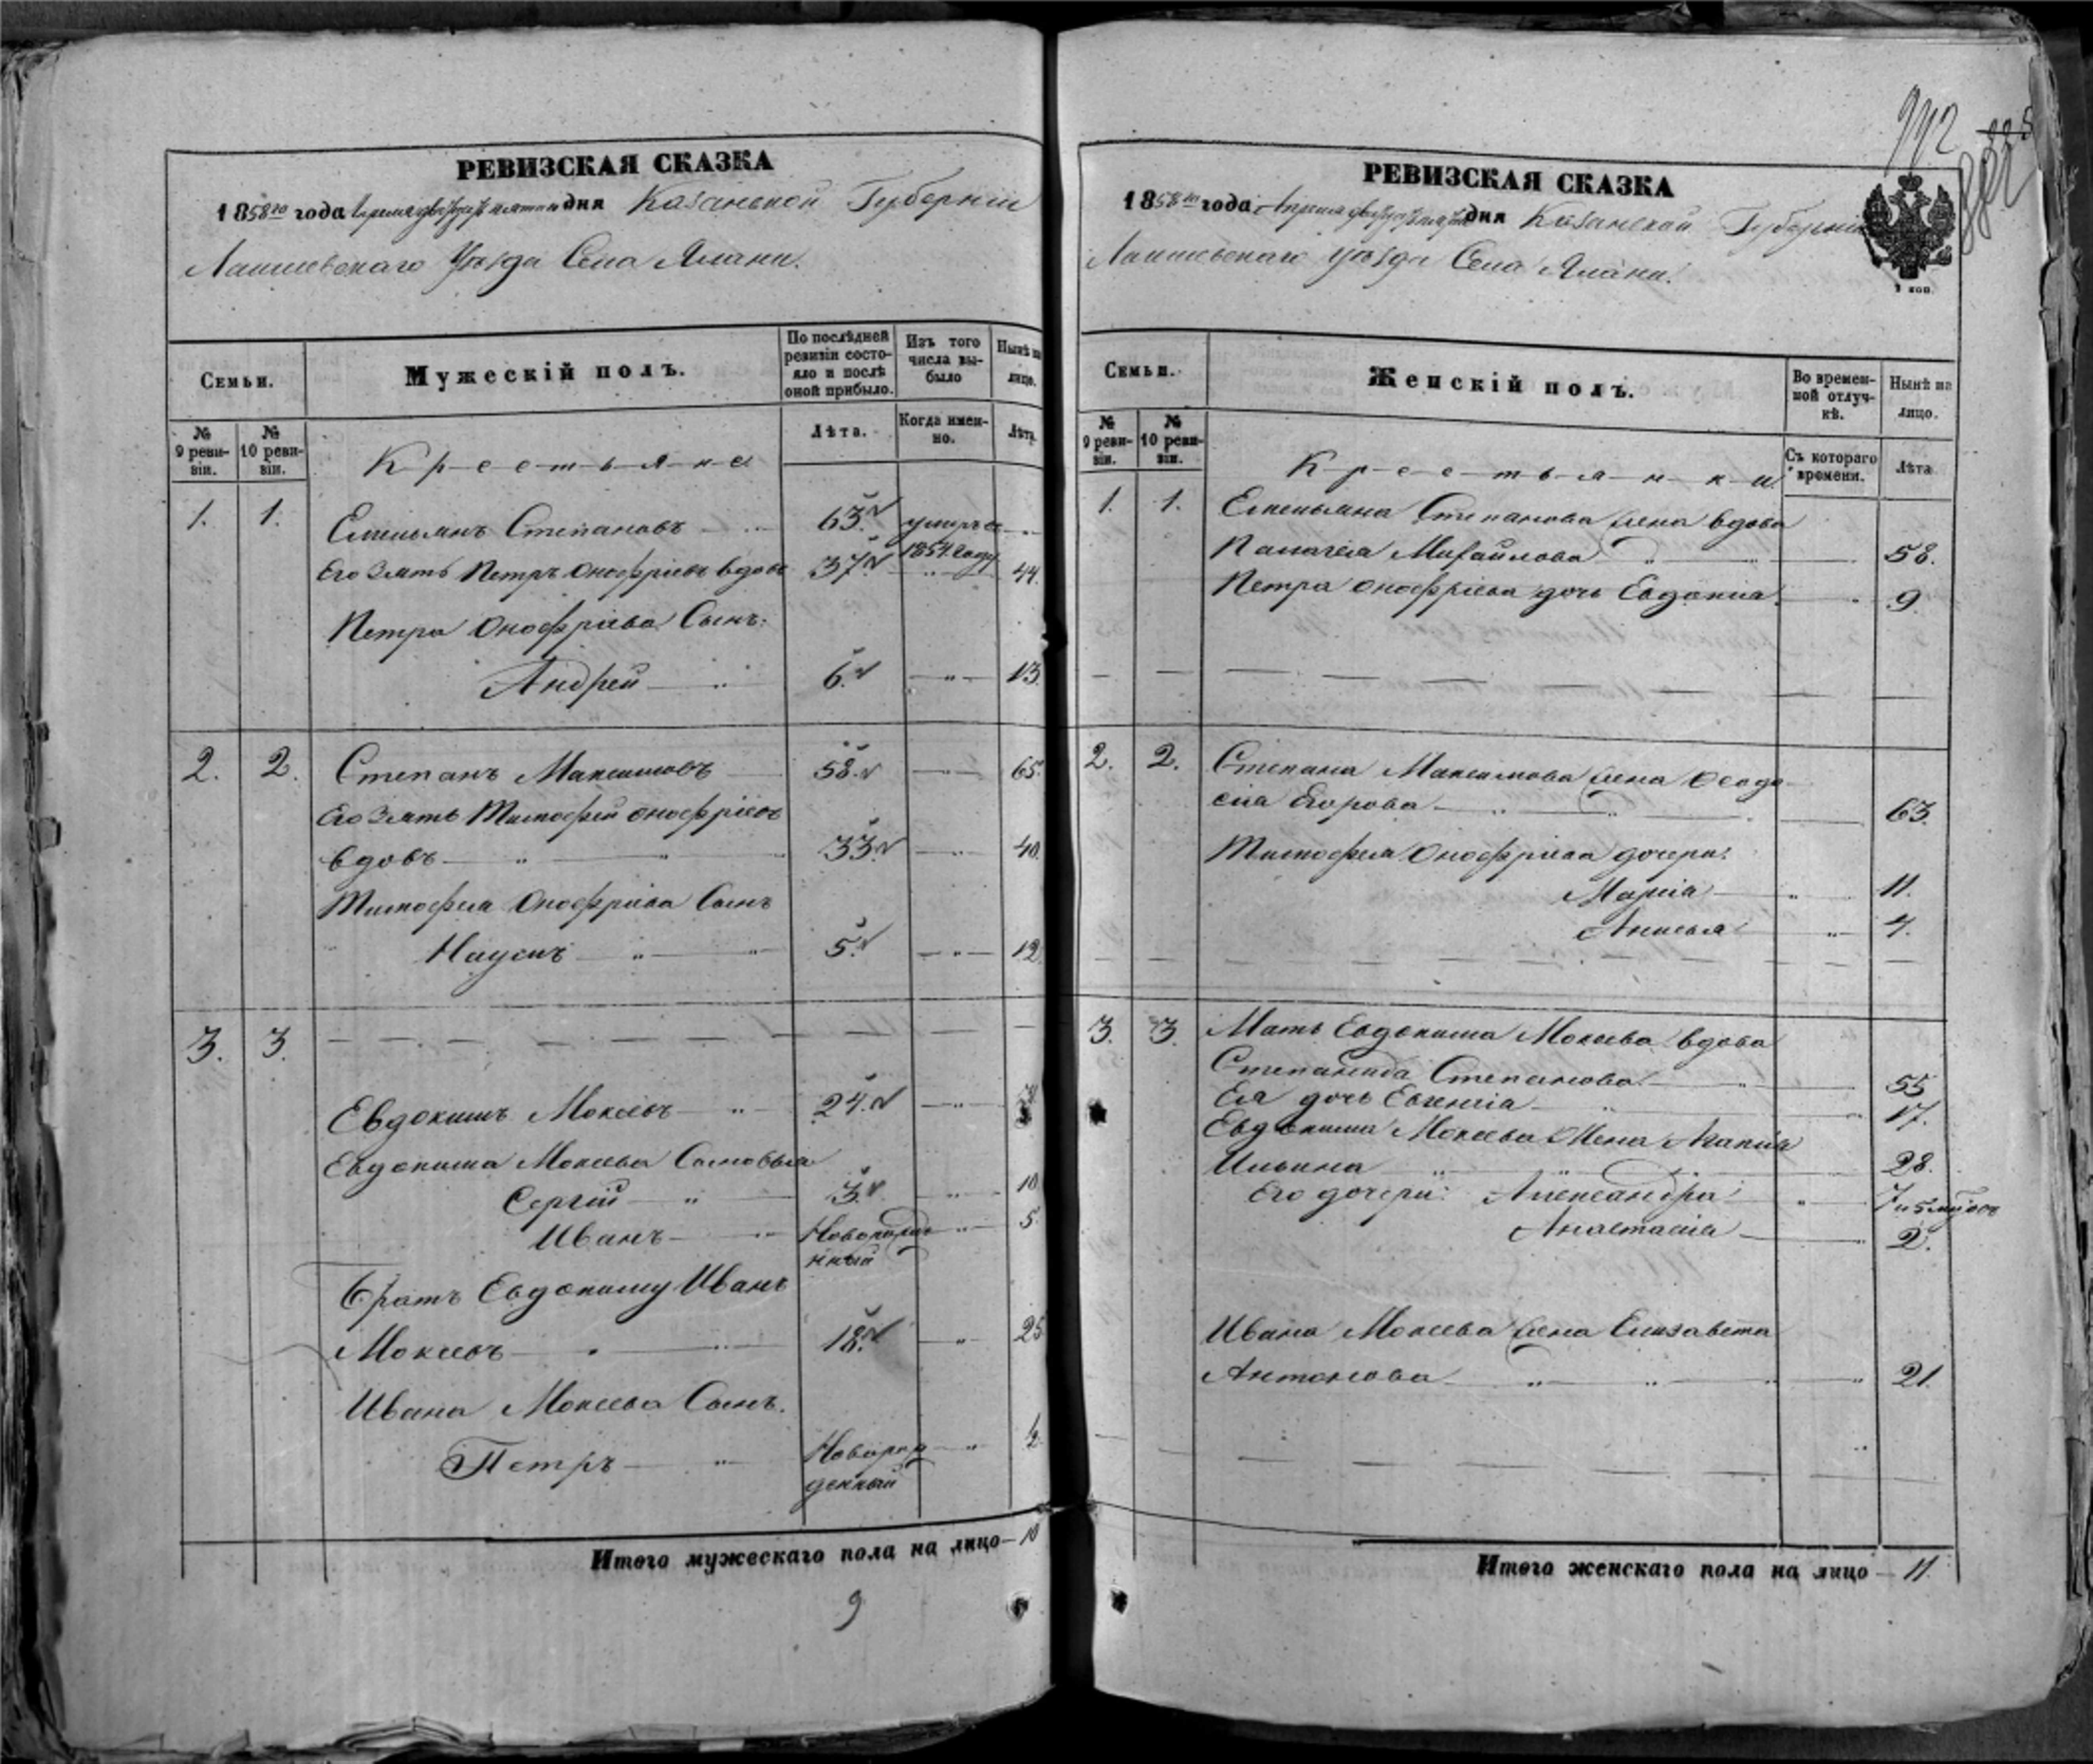 РЕВИЗСКАЯ СКАЗКА
1858го года Апреля двадцать пятого дня Казанской Губерніи
Лаишевскаго Уѣзда Села Алани.
Семьи.
Мужескій полъ.
По послѣдней ревизіи состояло и послѣ оной прибыло.
Изъ того числа выбыло
Нынѣ на лицо.
№ 9 ревизіи.
№ 10 ревизіи.
Лѣта.
Когда именно.
Лѣта
К-р-е-с-т-ь-я-н-е
1. 1. Емельянъ Степановъ 63. умеръ въ 1854 году
Его Зять Петръ Онофріевъ вдовъ 37. 44.
Петра Онофріева Сынъ:
Андрей 6. 13.
2. 2. Степанъ Максимовъ 58. 65.
Его Зять Тимофей Онофріевъ
вдовъ 33. 40.
Тимофея Онофріева Сынъ
Наумъ 5. 12.
3. 3.
Евдокимъ Мокеевъ 24.
Евдокима Мокеева Сыновья
Сергѣй 3. 10
Иванъ Новорожденный 5.
Братъ Евдокиму Иванъ
Мокеевъ 18. 25
Ивана Мокеева Сынъ.
Петръ Новорожденный
Итого мужескаго пола на лицо — 10
9
992
РЕВИЗСКАЯ СКАЗКА
1858го года Апреля двадцать пятого дня Казанской Губерніи
Лаишевскаго Уѣзда Села Алани.
1 коп.
Семьи.
Женскій полъ.
Во временной отлучкѣ.
Нынѣ на лицо.
№ 9 ревизіи.
№ 10 ревизіи.
Съ котораго времени.
Лѣта
К-р-е-с-т-ь-я-н-к-и
1. 1. Емельяна Степанова Жена вдова
Палагея Михайлова 58.
Петра Онофріева дочь Евдокиа 9
2. 2. Степана Максимова Жена Феодо-
сиа Егорова 63.
Тимофея Онофріева дочери:
Маріа 11.
Анисья 4.
3. 3. Мать Евдокима Мокеева вдова
Степанида Степанова 55
Ея дочь Евгеніа 17.
Евдокима Мокеева Жена Агапиа
Ильина 28.
Его дочери: Александра 7
Анастасіа 2.
Ивана Мокеева Жена Елизавета
Антонова 21.
Итого женскаго пола на лицо — 11